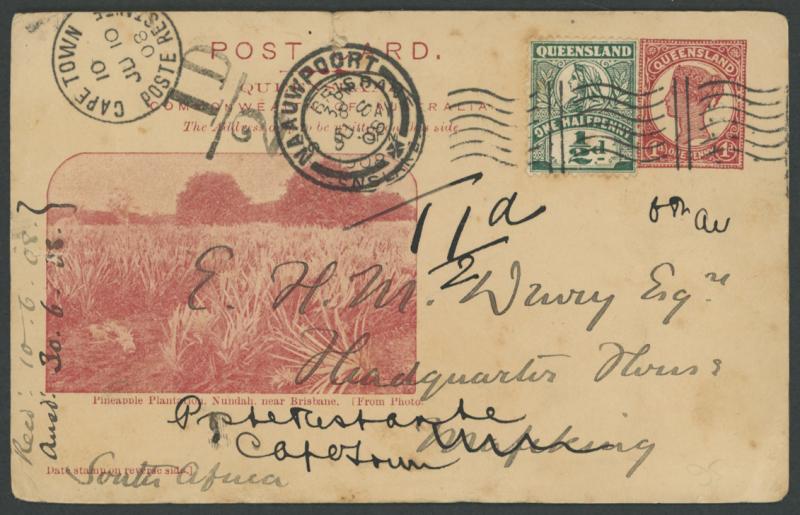 POST CARD.
QUEENSLAND
COMMONWEALTH OF AUSTRALIA
The Address only to be written on this side.
CAPE TOWN
10
JU 10
08
POSTE RESTANTE
1D
/2
NAAUWPOORT
JU
08
BRISBANE
QUEENSLAND
ONE HALFPENNY
½d
QUEENSLAND
1d ONE PENNY 1d
1½d
E. H. M. Drury Esqre
Headquarter House
Mafeking
Poste Restante
Cape Town
South Africa
Pineapple Plantation, Nundah, near Brisbane. [From Photo.
Date stamp on reverse side.]
Recd: 10. 6. 08.
Ansd: 30. 6. 08.